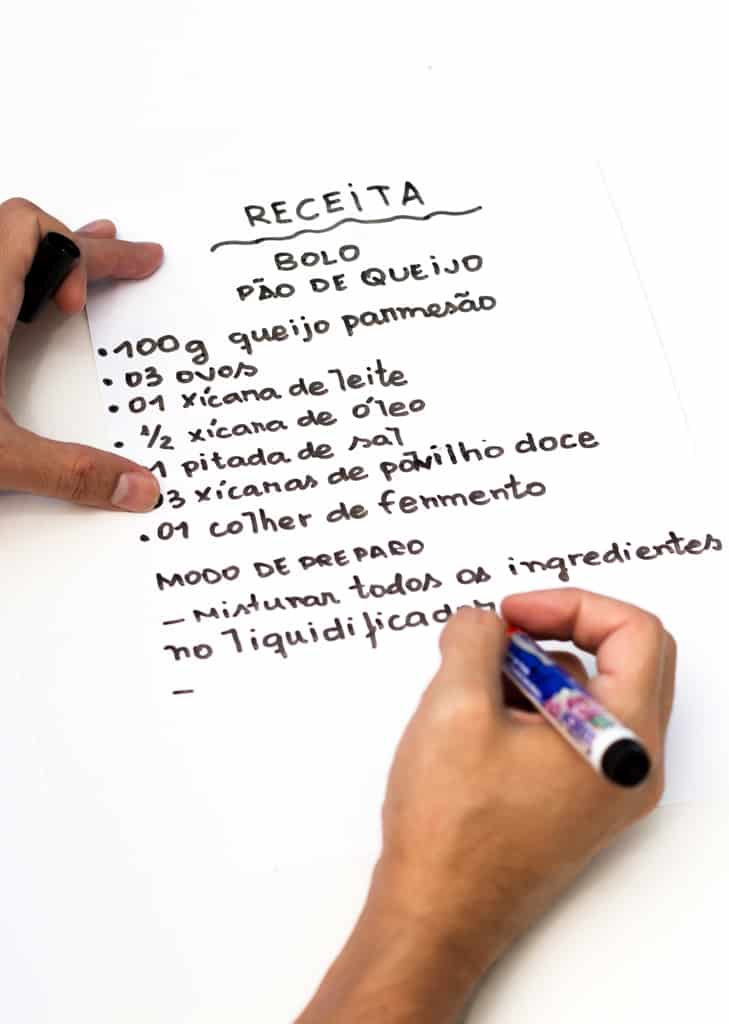 RECEITA
BOLO
PÃO DE QUEIJO
• 100g queijo parmesão
• 03 ovos
• 01 xícara de leite
• 1/2 xícara de óleo
1 pitada de sal
3 xícaras de polvilho doce
• 01 colher de fermento
MODO DE PREPARO
– Misturar todos os ingredientes
no liquidificador
–